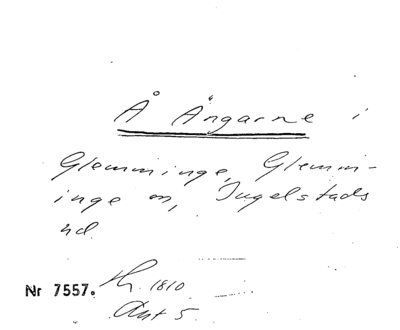 Å Ängarne i
Glemminge, Glemmin-
inge sn, Ingelstads
hd.
Nr 7557. Th. 1810
Akt 5